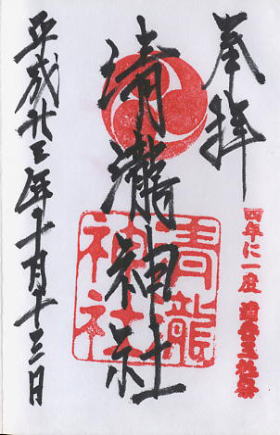 奉拝
四年に一度 浦安三社祭
清瀧神社
青龍
神社
平成廿三年十月十三日